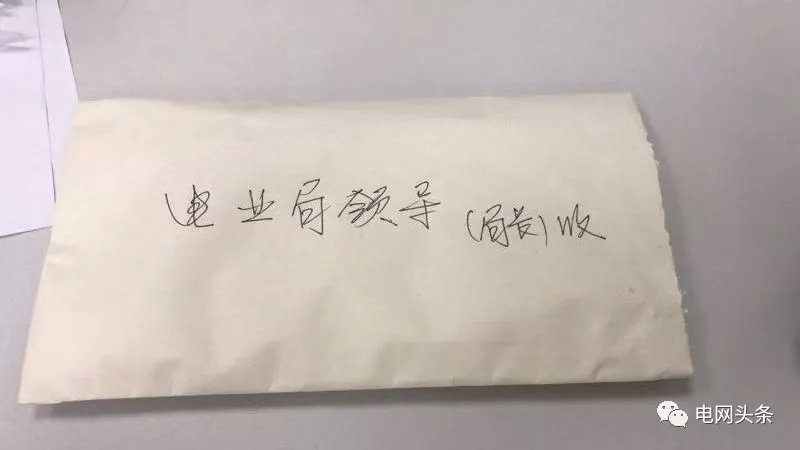 电业局领导（局长）收
电网头条